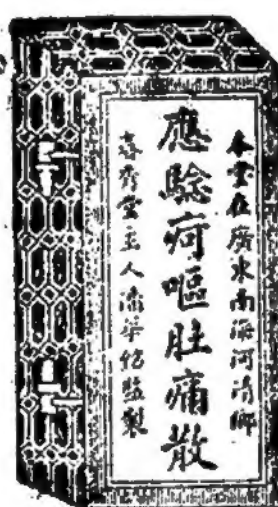 本堂在廣東南海河清鄉
應驗疴嘔肚痛散
堂主人潘監製